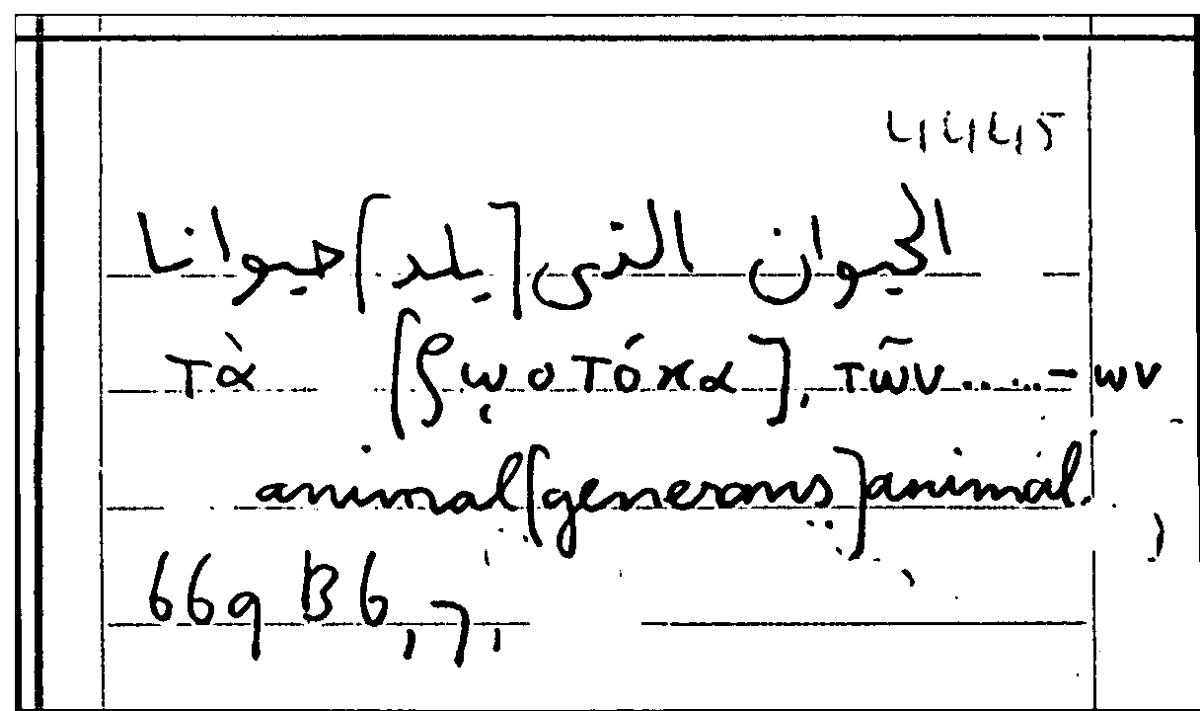 4445
الحيوان التى [يلد] حيوانا
τὰ [ζῳοτόκα], τῶν......-ων
animal [generans] animal.
669 B6,7,